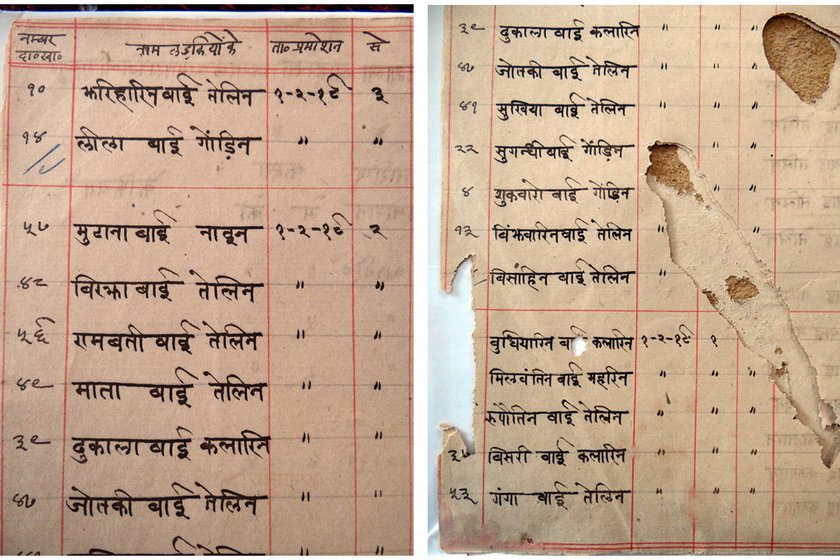 नम्बर दा०खा० नाम लड़कियों के ता० प्रमोशन से
१० झरिहारिन बाई तेलिन १-२-१९ ३
१४ लीला बाई गोंड़िन " "
५७ मुटाना बाई नावून १-२-१९ २
४८ बिरझा बाई तेलिन " "
५६ रामबती बाई तेलिन " "
४९ माता बाई तेलिन " "
३९ दुकाला बाई कलारिन " "
४७ जोतकी बाई तेलिन " "
३९ दुकाला बाई कलारिन " " "
४७ जोतकी बाई तेलिन " " "
४१ मुखिया बाई तेलिन " " "
२२ सुगन्धी बाई गोंड़िन " "
४ शुकवारो बाई गोंड़िन " "
१३ बिंझवारिन बाई तेलिन " "
बिसाहिन बाई तेलिन "
बुधियारिन बाई कलारिन १-२-१९ १ "
मिलवंतिन बाई महरिन " " "
रुपौतिन बाई तेलिन " " "
३७ बिसरी बाई कलारिन " " "
५३ गंगा बाई तेलिन " " "